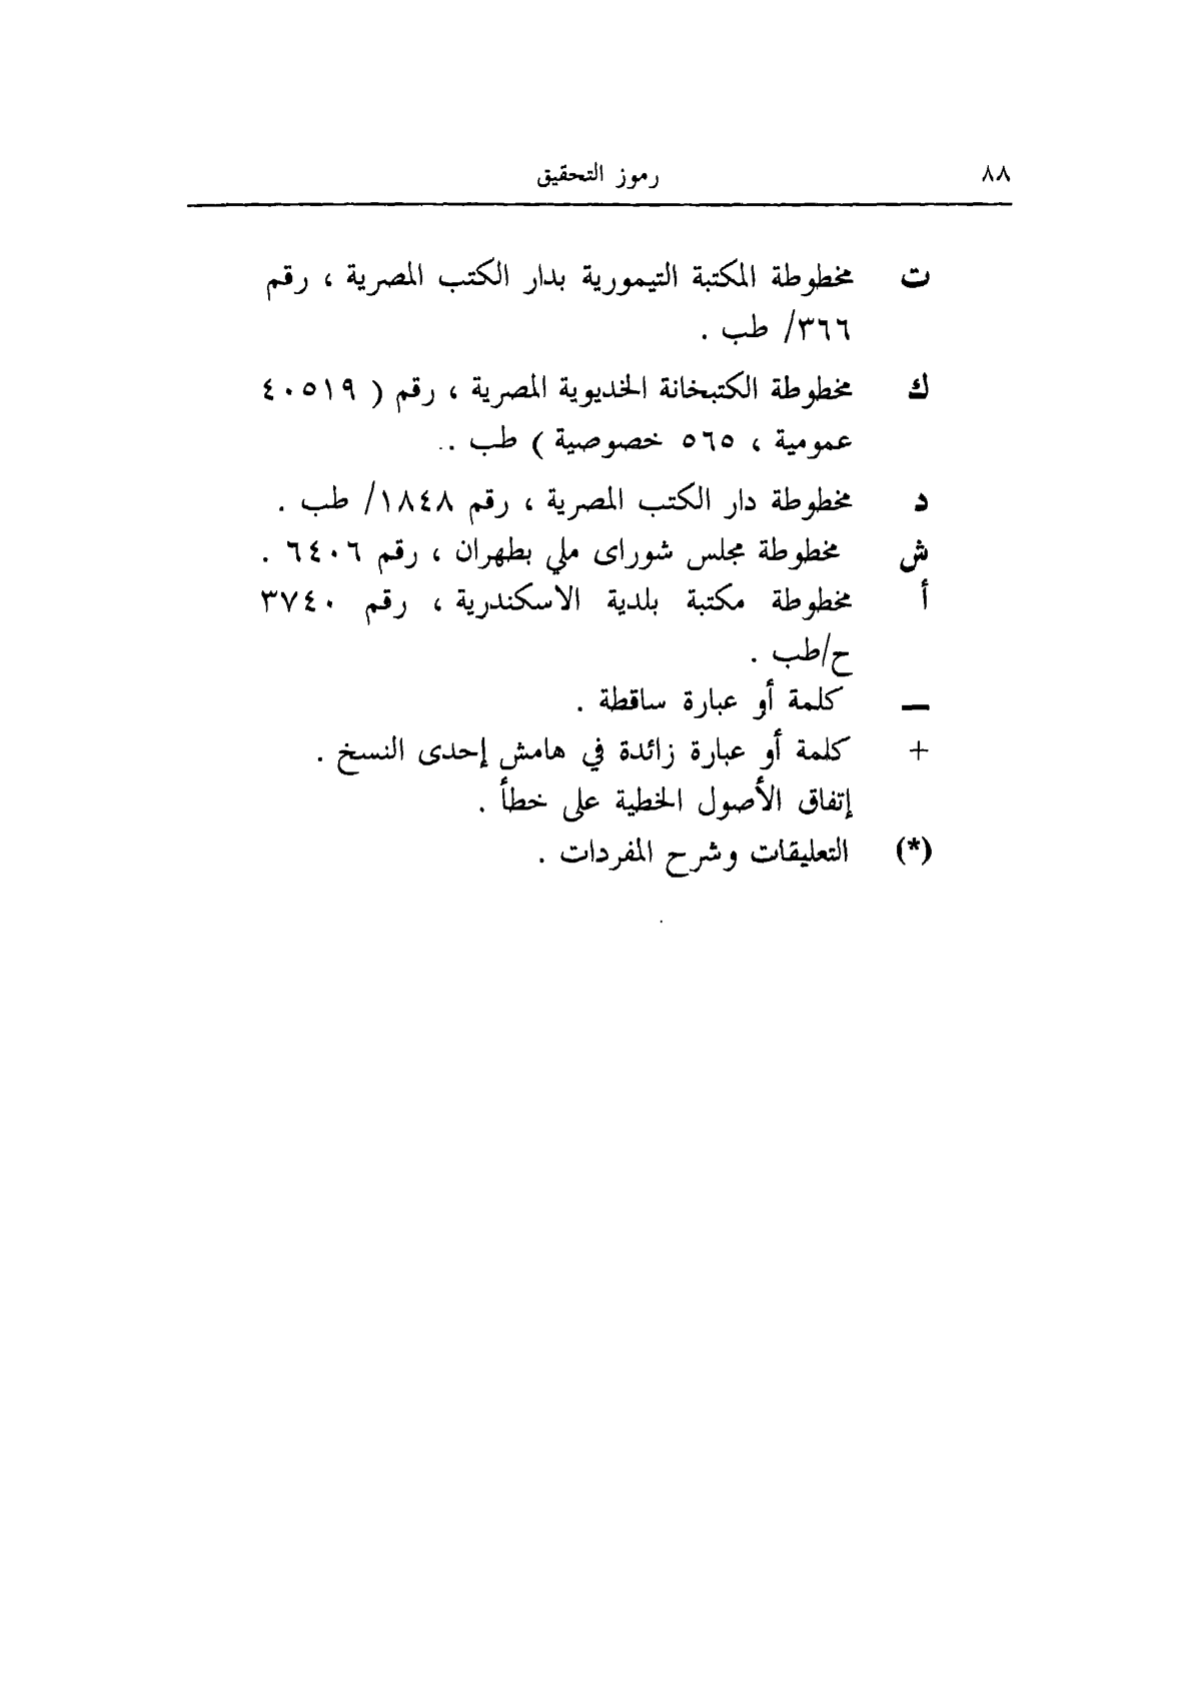 ٨٨ رموز التحقيق
ت مخطوطة المكتبة التيمورية بدار الكتب المصرية ، رقم
٣٦٦/ طب .
ك مخطوطة الكتبخانة الخديوية المصرية ، رقم ( ٤٠٥١٩
عمومية ، ٥٦٥ خصوصية ) طب ..
د مخطوطة دار الكتب المصرية ، رقم ١٨٤٨/ طب .
ش مخطوطة مجلس شوراى ملي بطهران ، رقم ٦٤٠٦ .
أ مخطوطة مكتبة بلدية الاسكندرية ، رقم ٣٧٤٠
ح/طب .
— كلمة أو عبارة ساقطة .
+ كلمة أو عبارة زائدة في هامش إحدى النسخ .
إتفاق الأصول الخطية على خطأ .
(*) التعليقات وشرح المفردات .